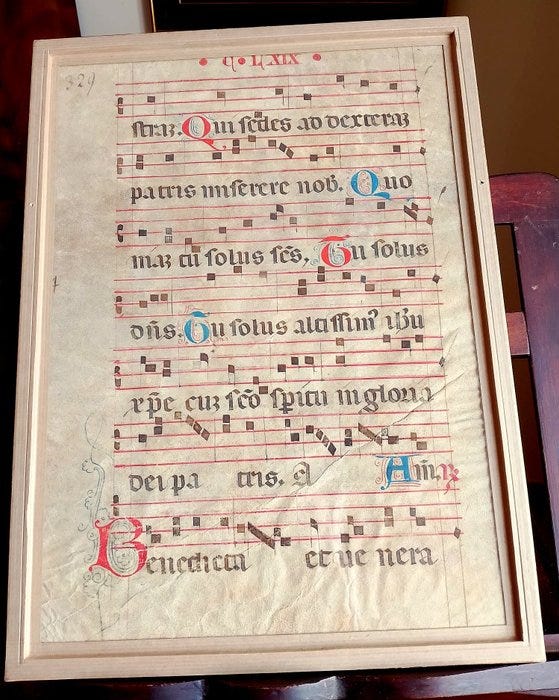 • C • LXIX •
329
straz. Qui sedes ad dexteraz
patris miserere nob. Quo
niaz cu solus scs, Tu solus
dns. Tu solus altissim9 ihu
xpe cuz sco spitu in gloria
dei pa tris. A Am.
Benedicta et ue nera